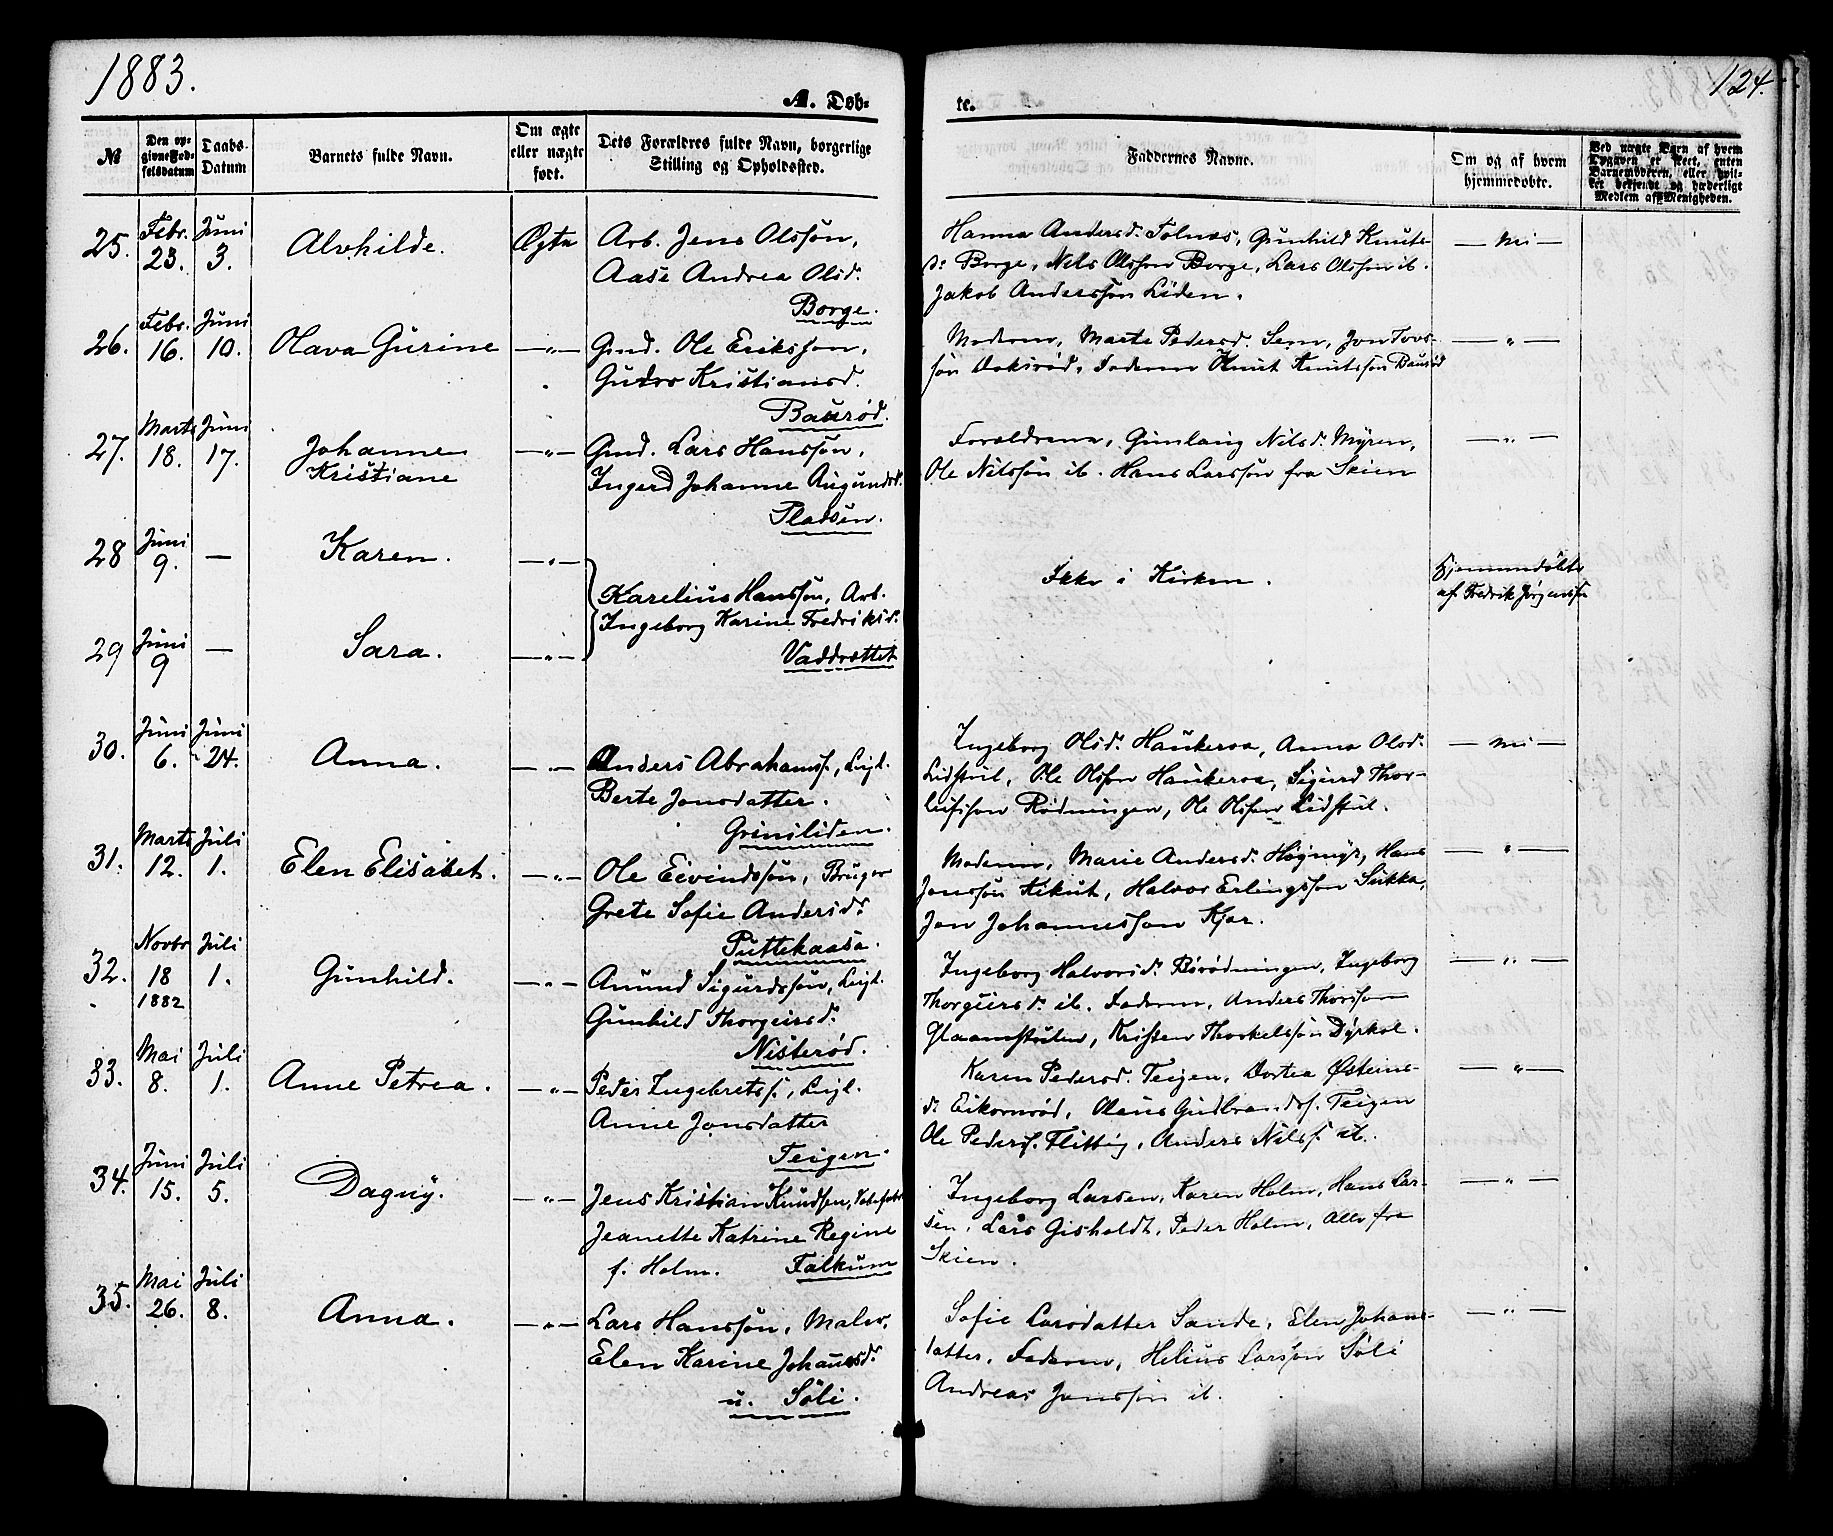 1883.
124.
A. Døb-
te.
№
Den op-
givne Fød-
selsdatum
Daabs-
Datum
Barnets fulde Navn.
Om ægte
eller uægte
født.
Dets Forældres fulde Navn, borgerlige
Stilling og Opholdssted.
Faddernes Navne.
Om og af hvem
hjemmedøbte.
Ved uægte Barn af hvem
Opgaven er skeet, enten
Barnemoderen, eller hvil-
ket bekjendt og hæderligt
Medlem af Menigheden.
25. Febr. 23. Juni 3. Alvhilde. Ægte
Arb. Jens Olssøn,
Aase Andrea Olsd.
Borge.
Hanna Andersd. Tolnæs, Gunhild Knuts-
d. Borge, Nils Olssøn Borge, Lars Olssøn ib.
Jakob Anderssøn Liden.
— nei —
26. Febr. 16. Juni 10. Olava Gurine —„—
Gmd. Ole Erikssøn,
Gudro Kristiansd.
Baurød.
Moderen, Marte Pedersd. Sem, Jon Tovs-
søn, Faderen Knut Knutssøn Baurød
— „ —
27. Marts 18. Juni 17. Johanne
Kristiane —„—
Gmd. Lars Hanssøn,
Ingerd Johanne Augundsd.
Pladsen.
Forældrene, Gunlaug Nilsd. Myren,
Ole Nilssøn ib. Hans Larssøn fra Skien
— „ —
28 Juni 9. — Karen. —„—
Karelius Hanssøn, Arb.
Ingeborg Karine Fredriksd.
Vaddrættet
Ikke i Kirken.
Hjemmedøbte
af Fredrik Jørgenssøn
29 Juni 9 — Sara. —„—
30. Juni 6. Juni 24. Anna. —„—
Anders Abrahamsf., Leijl.
Berte Jonsdatter.
Griniliden.
Ingeborg Olsd. Haukeraa, Anna Olsd.
Lidstul, Ole Olssøn Haukeraa, Sigurd Thor-
leifssøn Rødningen, Ole Olssøn Lidstul.
— nei —
31. Marts 12. Juli 1. Elen Elisabet. —„—
Ole Eivindssøn, Bruger
Grete Sofie Andersd.
Puttekaasa.
Moderen, Marie Andersd. Høgmyr, Hans
Jonssøn Kikut, Halvor Erlingssøn Sukka,
Jon Johannessøn Kjær.
— „ —
32. Novbr 18 1882 Juli 1. Gunhild. —„—
Amund Sigurdssøn, Leijl.
Gunhild Thorgeirsd.
Nisterød.
Ingeborg Halvorsd. Børødningen, Ingeborg
Thorgeirsd. ib. Faderen, Anders Thorssøn
Glaamstulen, Kristen Thorkelssøn Dyrkol.
— „ —
33. Mai 8. Juli 1. Anne Petrea. —„—
Peder Ingebretsf., Leijl.
Anne Jonsdatter
Teigen.
Karen Pedersd. Teigen, Dortea Østeins-
d. Eikornrød, Olaus Gudbrandsf. Teigen
Ole Pedersf. Flittig, Anders Nilsf. ib.
— „ —
34. Juni 15. Juli 5. Dagny. —„—
Jens Kristian Knudsen,
Jeanette Katrine Regine
f. Holm. Falkum
Ingeborg Larsen, Karen Holm, Hans Lar-
sen, Lars Gisholdt, Peder Holm, Alle fra
Skien.
— „ —
35. Mai 26. Juli 8. Anna. —„—
Lars Hanssøn, Maler,
Elen Karine Johansd.
u. Søli.
Sofie Larsdatter Sande, Elen Johans-
datter, Faderen, Helius Larssøn Søli
Andreas Jonssøn ib.
— „ —